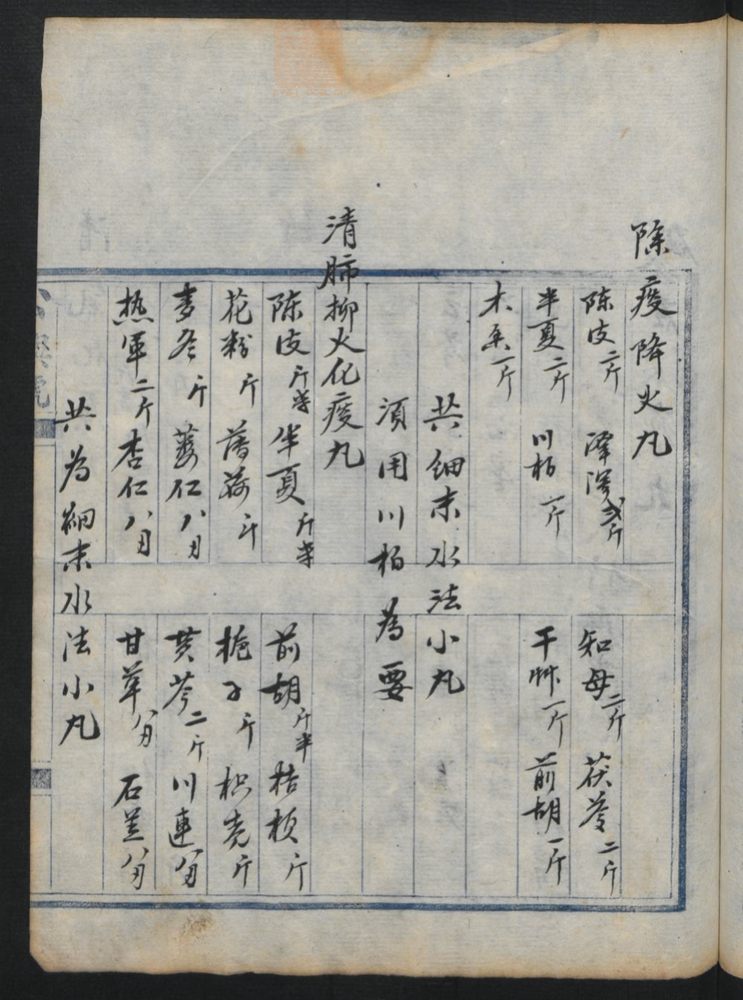 除痰降火丸
陈皮二斤 泽泻弍斤 知母二斤 茯苓二斤
半夏二斤 川柏一斤 干叶一斤 前胡一斤
木香一斤
共细末水法小丸
须用川柏为要
清肺抑火化痰丸
陈皮斤半 半夏斤半 前胡斤半 桔梗斤
花粉斤 薄荷斤 栀子斤 枳壳斤
麦冬斤 蒌仁八刃 黄芩二斤 川連八刃
熟軍二斤 杏仁八刃 甘草八刃 石羔八刃
共為細末水法小丸